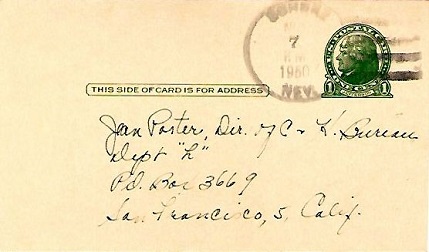 7
1950
NEV.
1 1
THIS SIDE OF CARD IS FOR ADDRESS
Jan Porter, Dir. of C & H. Bureau
Dept "L"
P.O. Box 3669
San Francisco, 5, Calif.